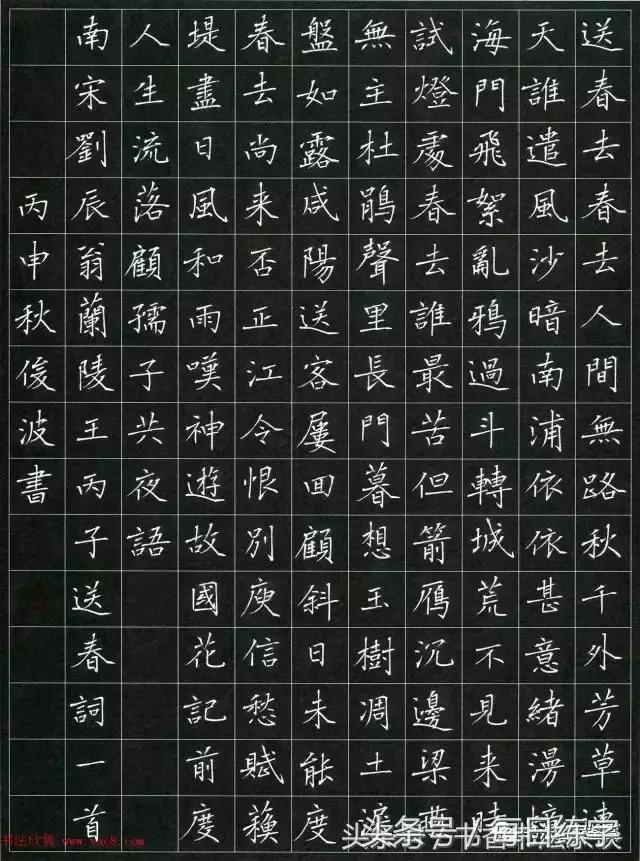 送春去春去人間無路秋千外芳草連
天誰遣風沙暗南浦依依甚意緒漫憶
海門飛絮亂鴉過斗轉城荒不見来時
試燈處春去誰最苦但箭雁沉邊梁燕
無主杜鵑聲里長門暮想玉樹凋土淚
盤如露咸陽送客屢回顧斜日未能度
春去尚来否正江令恨別庾信愁賦蘓
堤盡日風和雨嘆神遊故國花記前度
人生流落顧孺子共夜語
南宋劉辰翁蘭陵王丙子送春詞一首
丙申秋俊波書
书法欣赏 www.yac8.com